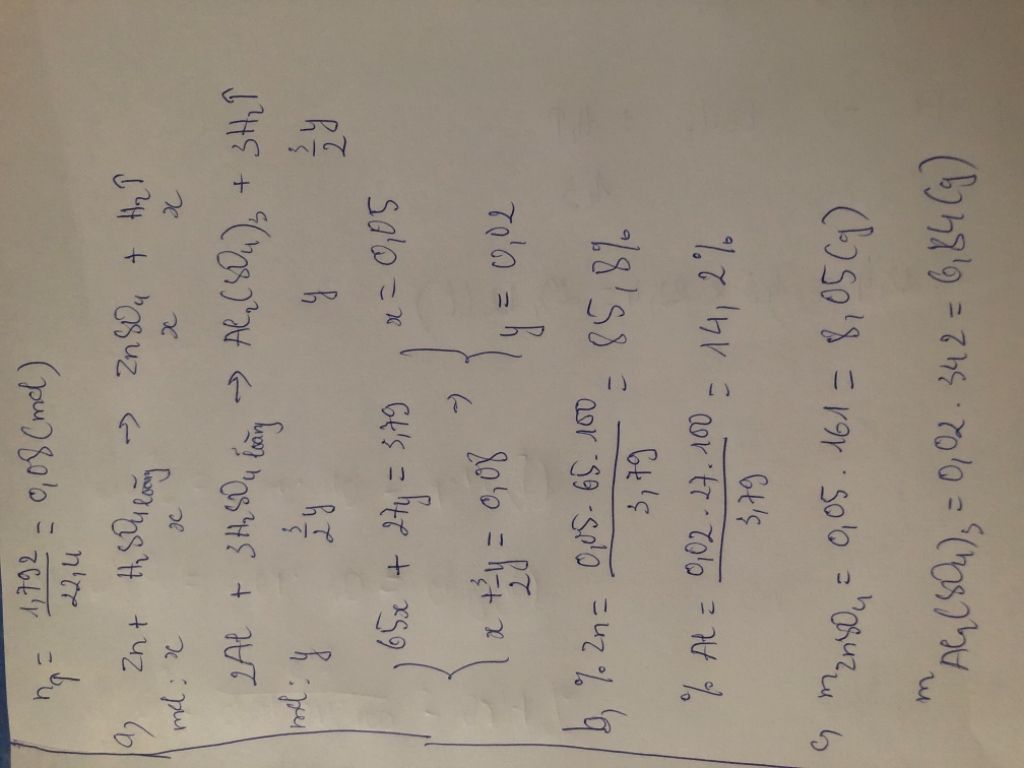 n↑ = 1,792 / 22,4 = 0,08 (mol)
a, Zn + H₂SO₄ loãng → ZnSO₄ + H₂↑
mol: x x x x
2Al + 3H₂SO₄ loãng → Al₂(SO₄)₃ + 3H₂↑
mol: y 3/2 y y 3/2 y
{ 65x + 27y = 3,79 } x = 0,05
{ x + 3/2 y = 0,08 → } y = 0,02
b, % Zn = 0,05 . 65 . 100 / 3,79 = 85,8%
% Al = 0,02 . 27 . 100 / 3,79 = 14,2%
c, m ZnSO₄ = 0,05 . 161 = 8,05 (g)
m Al₂(SO₄)₃ = 0,02 . 342 = 6,84 (g)